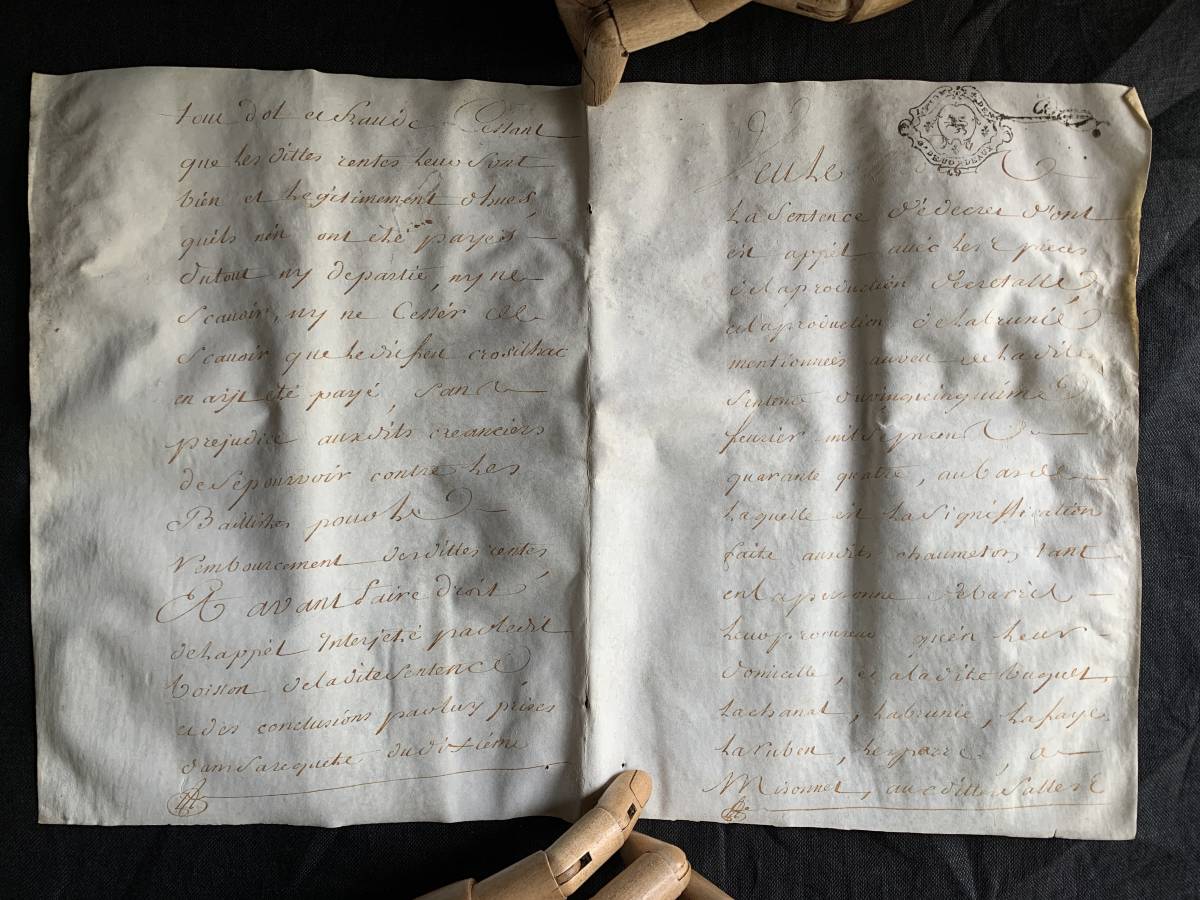 tout dol et fraude Cessant
que les dittes rentes leur sont
bien et legitimement dhues,
quils nen ont eté payers
dutout ny departie, ny ne
scauoir, ny ne Cessér de
scauoir que ledit feu crosilhac
en ayt eté payé, sans
prejudice auxdits creanciers
desepourvoir contre les
Baillistes pour le
rembourcement desdittes rentes,
Et avant faire droit
delappel Interjetté parledit
boisson deladitte sentence
et des conclusions parluy prises
dans sarequete du dixiéme
Veu Le
DE BORDEAUX
La sentence dedecret dont
est appél auéc les pieces
et laproduction decretalle,
et laproduction de labrunie
mentionnées auveu de laditte
sentence duvingcinquiéme
feurier mil sept cens
quarante quatre, aubas de
laquelle est la signiffication
faite auxdits chaumeton, tant
en lapersonne debariet
leur procureur qu'en leur
domicille, et a laditte buquet,
lachanal, labrunie, lafaye,
laruben, lespare, a
Misonnet, auxdittes